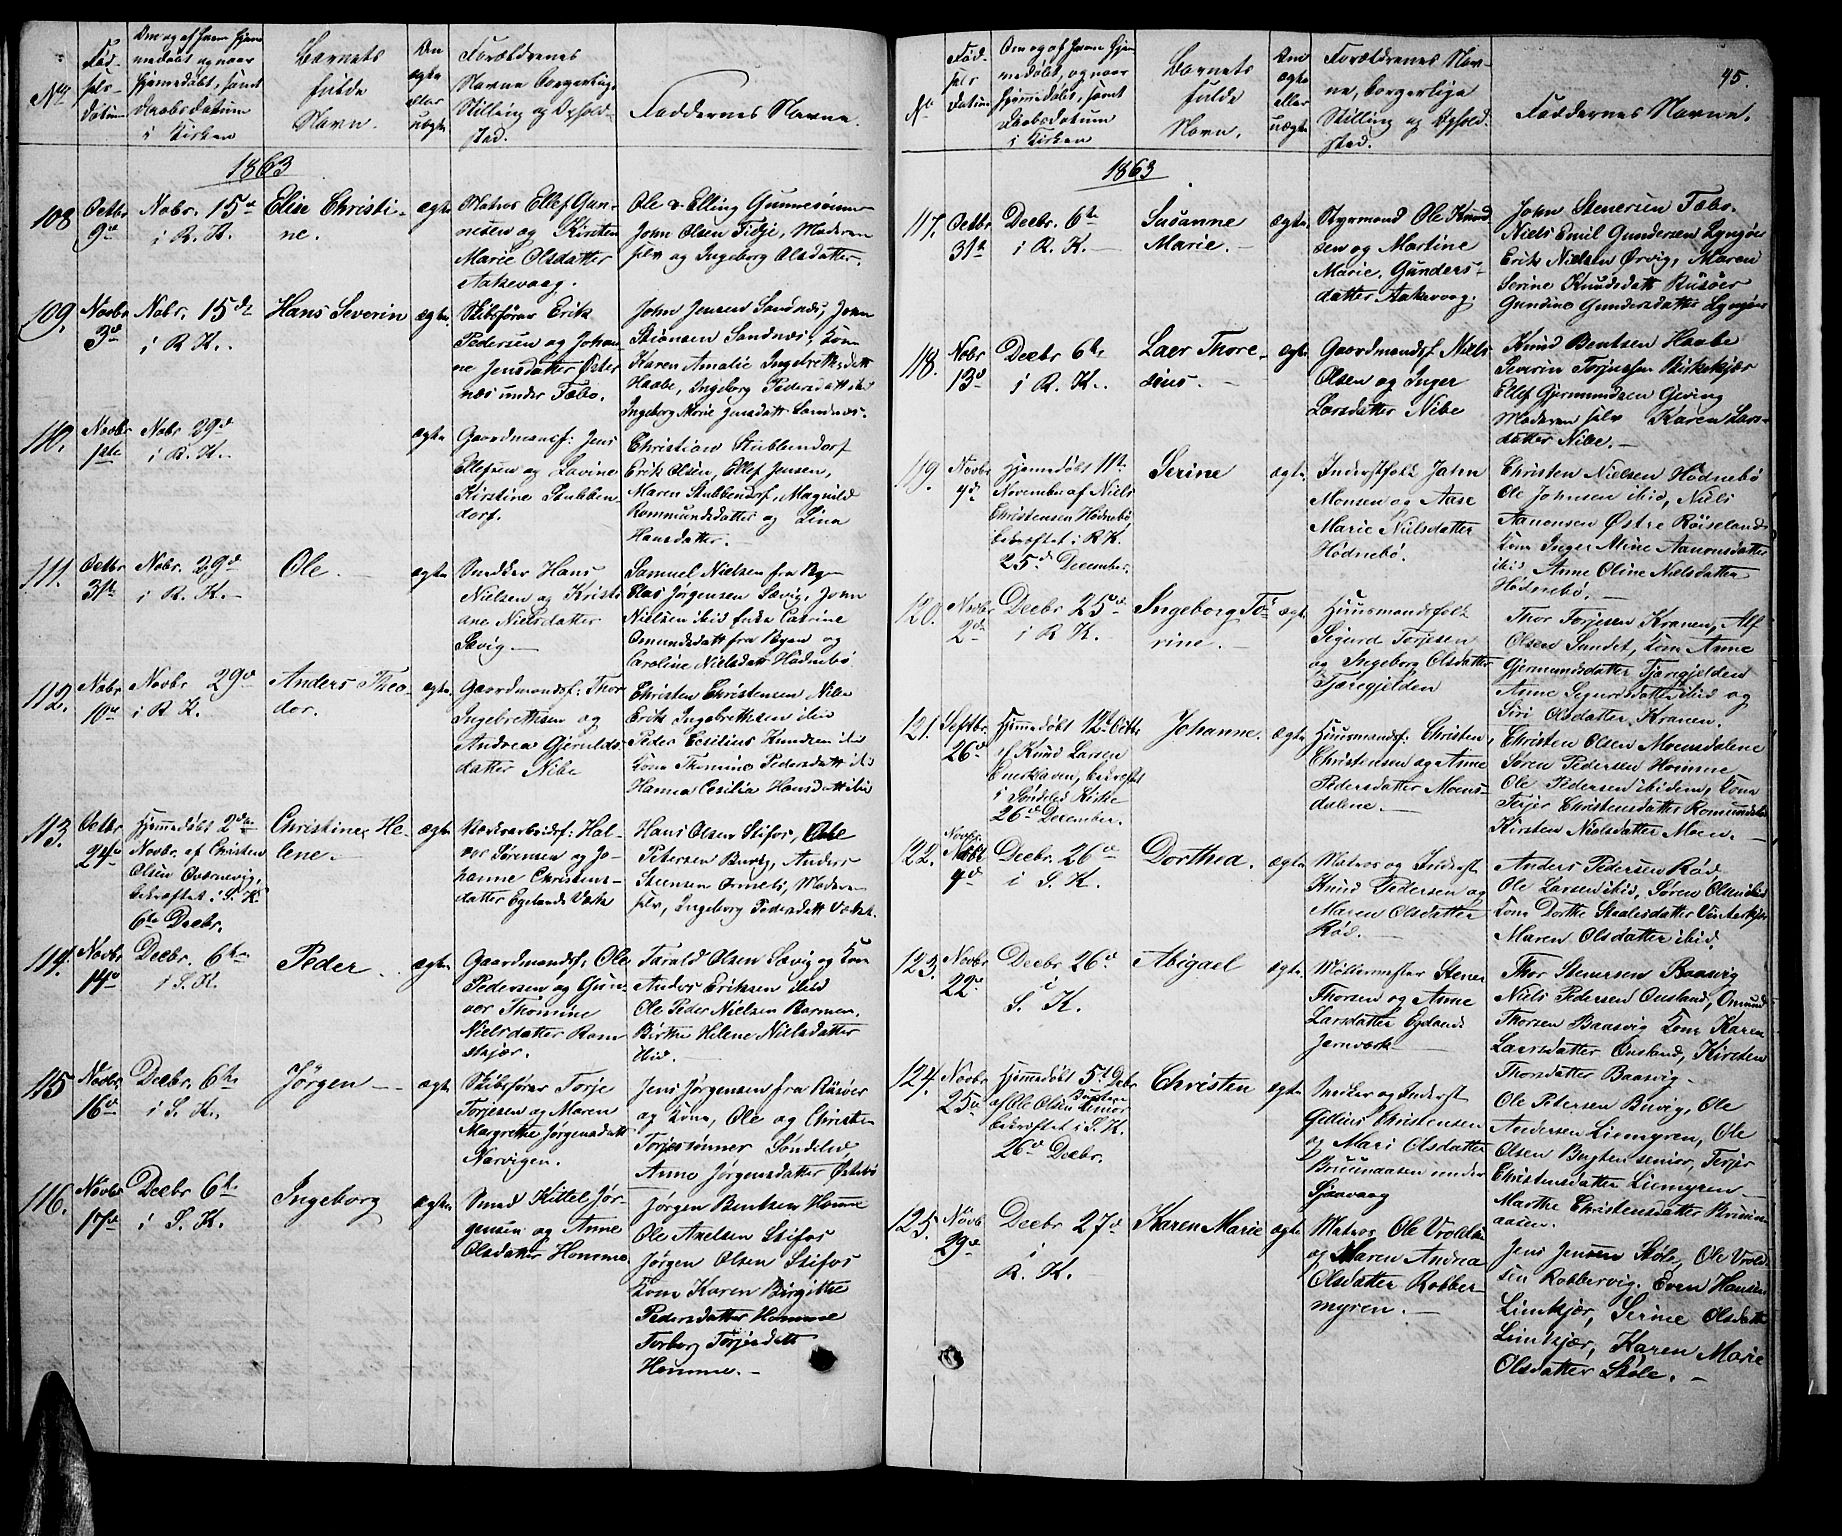 No
Fød-
sels-
datum
Om og af hvem hjem-
medøbt og naar
hjemmedøbt, samt
Daabsdatum
i Kirken
Barnets
fulde
Navn.
Om
ægte
eller
uægte
Forældrenes
Navne borgerlige
Stilling og Ophold-
sted.
Faddernes Navne.
1863
108
Octbr
9de
Nobr. 15de
i R. K.
Elise Christi-
ne.
ægte
Matros Ellef Gun-
nesen og Kirsten
Marie Olsdatter
Aakevaag.
Ole & Elling Gunnesønner
John Olsen Fidje, Moderen
selv og Ingeborg Olsdatter.
109.
Novbr
3d
Nobr. 15de
i R K.
Hans Severin
ægte
Skibsfører Erik
Pedersen og Johan-
ne Jensdatter Øster
næs under Fæbo.
John Jensen Sandnæs, John
Sandnæs, Kone
Karen Amalie Ingebrethsdatt
Haabe, Ingeborg Pedersdatt ibid
Ingeborg Marie Jensdatt Sandnæs.
110.
Novbr
1ste
Nobr 29d
i R. K.
ægte
Gaardmansf: Jens
Ellefsen og Lovine
Kirstine Stubben
dorf.
Christian Stubbendorf
Erik Olsen, Ellef Jensen,
Maren Stubbendorf, Magnild
Romundsdatter og Lina
Hansdatter.
111.
Octbr
31te
Nobr. 29d
i R. K.
Ole.
ægte
Snedker Hans
Nielsen og Kristi
ane Nielsdatter
Søvig.
Samuel Nielsen fra Byen
Clas Jørgensen Søvig, John
Nielsen ibid Catrine
Omundsdatt fra Byen og
Caroline Nielsdatt Hødnebø
112.
Nobr
10de
Novbr 29d
i R K.
Anders Theo-
dor.
ægte
Gaardmandsf: Thor
Ingebrethsen og
Andrea Gjerulds-
datter Nibe
Christen Christensen Nibe
Erik Ingebrethsen ibid
Peder Cecilius Knudsen ibid
Kone Thomine Pedersdatt ibid
Hanna Cecilia Hansdatt ibid
113.
Octbr
24de
Hjemmedøbt 2den
Novbr. af Christen
Olsen Qværnevig,
bekræftet i S. K.
6te Decbr.
Christine He-
lene.
ægte
Hal-
vor Sørensen og Jo-
hanne Christens-
datter Egelands Værk
Hans Olsen Stifos, Ole
Petersen Anders
Steensen Moderen
selv, Ingeborg Pedersdatt Værket.
114.
Novbr
14d
Decbr. 6te
i S. K.
Peder
ægte
Gaardmandsf: Ole
Pedersen og Gun-
vor Thomine
Nielsdatter Rom
skjær.
Tarald Olsen Søvig og Kone
Anders Eriksen ibid
Ole Peder Nielsen Barmen.
Birthe Helene Nielsdatter
ibid.
115
Novbr.
16d
Decbr. 6te
i S. K.
Jørgen
ægte
Skibsfører Torje
Torjesen og Maren
Margrethe Jørgensdatt
Narvigen.
Jens Jørgensen fra Risøer
og Kone, Ole og Christen
Torjessønner Søndeled,
Anne Jørgensdatter Østebø
116.
Novbr
17d
Decbr 6te
i S. K.
Ingeborg
ægte
Smed Kittel Jør-
gensen og Anne
Olsdatter Homme
Jørgen Bentsen Homme
Ole Axelsen Stifos
Jørgen Olsen Stifos
Kone Karen Birgitte
Pedersdatter Homme
Torborg Torjesdatt
Homme.
No
Fød-
sels
datum
Om og af hvem hjem
medøbt, og naar
hjemmedøbt, samt
Daabsdatum
i Kirken
Barnets
fulde
Navn.
Om
ægte
eller
uægte
Forældrenes Nav-
ne, borgerlige
Stilling og Ophold-
sted.
Faddernes Navne.
45.
1863
117.
Octbr
31te
Decbr. 6te
i R. K.
Susanne
Marie.
ægte.
Styrmand Ole Knud
sen og Martine
Marie Gunders-
datter Aakevaag.
John Stenersen Fæbo.
Niels Emil Gundersen Lyngøer
Erik Nielsen Ørvig, Maren
Serine Knudsdatt Risøer
Gundine Gundersdatter Lyngøer
118.
Nobr
13d
Decbr 6te
i R. K.
Laer Thore-
sius.
ægte
Gaardmandsf. Niels
Olsen og Inger
Larsdatter Nibe
Knud Bentsen Haabe
Severin Torjussen
Ellef Gjermundsen Geving
Moderen selv Karen Lars-
datter Nibe.
119.
Novbr
4de
Hjemmedøbt 11te
November af Niels
Christensen Hødnebø,
bekræftet i R K.
25d December.
Serine
ægte.
Inderstfolk John
Monsen og Aase
Marie Nielsdatter
Hødnebø.
Christen Nielsen Hødnebø
Ole Johnsen ibid, Niels
Aanonsen Østre Røiseland
Kone Inger Mine Aanonsdatter
ibid Anne Oline Nielsdatter
Hødnebø.
120.
Novbr
2de
Decbr 25d
i R K.
Ingeborg To-
rine.
ægte
Huusmandsfolk
Sigurd Torjesen
og Ingeborg Olsdatter
Fjæregjelden
Thor Torjesen Kranen, Alf
Olsen Sundet, Kone Anne
Gjermundsdatter Fjæregjelden
Anne Sigurdsdatter ibid og
Siri Olsdatter Kranen.
121.
Septbr.
26d
Hjemmedøbt 12te Octbr
af Knud Larsen
bekræftet
i Søndeled Kirke
26d December.
Johanne.
ægte
Huusmandsf: Christen
Christensen og Anne
Pedersdatter Moens-
dalene.
Christen Olsen Moensdalene
Søren Pedersen Homme
Ole Pedersen ibidem, Kone
Terjer Christensdatter
Kirsten Nielsdatter Moen.
122.
Novbr.
9d
Decbr. 26d
i S. K.
Dorthea.
ægte
Matros og Inderst
Knud Pedersen og
Maren Olsdatter
Rød.
Anders Pedersen Rød
Ole Larsen ibid, Søren Olsen ibid
Kone Dorthe Staalesdatter Vinterkjær
Maren Olsdatter ibid.
123.
Novbr
22d
Decbr. 26d
i
S. K.
Abigael
ægte
Møllermester Stener
Thorsen og Anne
Larsdatter Egelands
Jernværk
Thor Stenersen Baasvig
Niels Pedersen Ousland, Omund
Thorsen Baasvig Kone Karen
Laersdatter Ousland, Kirsten
Thorsdatter Baasvig.
124.
Novbr
25d
Hjemmedøbt 5te Decbr
af Ole Olsen Bugten
senior
bekræftet i S. K.
26d Decbr.
Christen
ægte.
og Inderst
Gelius Christensen
og Mari Olsdatter
Bruunaasen under
Sjaavaag
Ole Petersen Buvig, Ole
Andersen Liemyren, Ole
Olsen Bugten senior, Terjer
Christensdatter Liemyren
Marthe Christensdatter Bruun-
aasen.
125.
Novb.
29d
Decbr 27d
i
R. K.
Karen Marie
ægte
Matros Ole Vroldsen
og Maren Andrea
Olsdatter Robber-
myren.
Jens Jensen Støle, Ole Vrold
sen Robbervig. Even Hansen
Limkjær, Serine Olsdatter
Limkjær, Karen Marie
Olsdatter Støle.